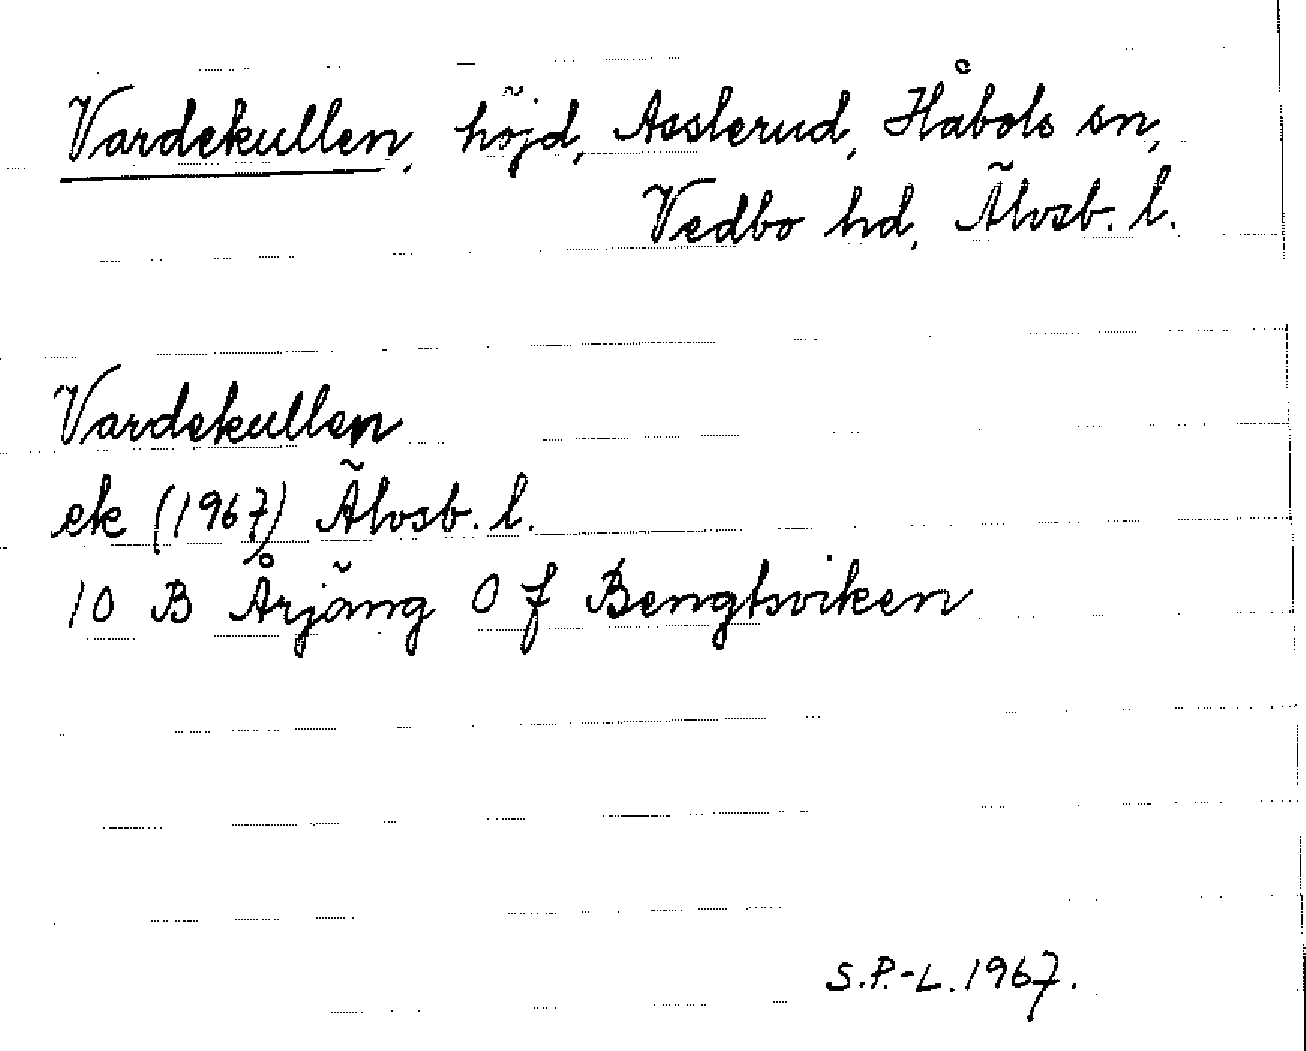 Vardekullen, höjd, Asslerud, Håbols sn,
Vedbo hd, Älvsb. l.
Vardekullen
ek (1967) Älvsb. l.
10 B Årjäng 0 f Bengtsviken
S.P.-L. 1967.